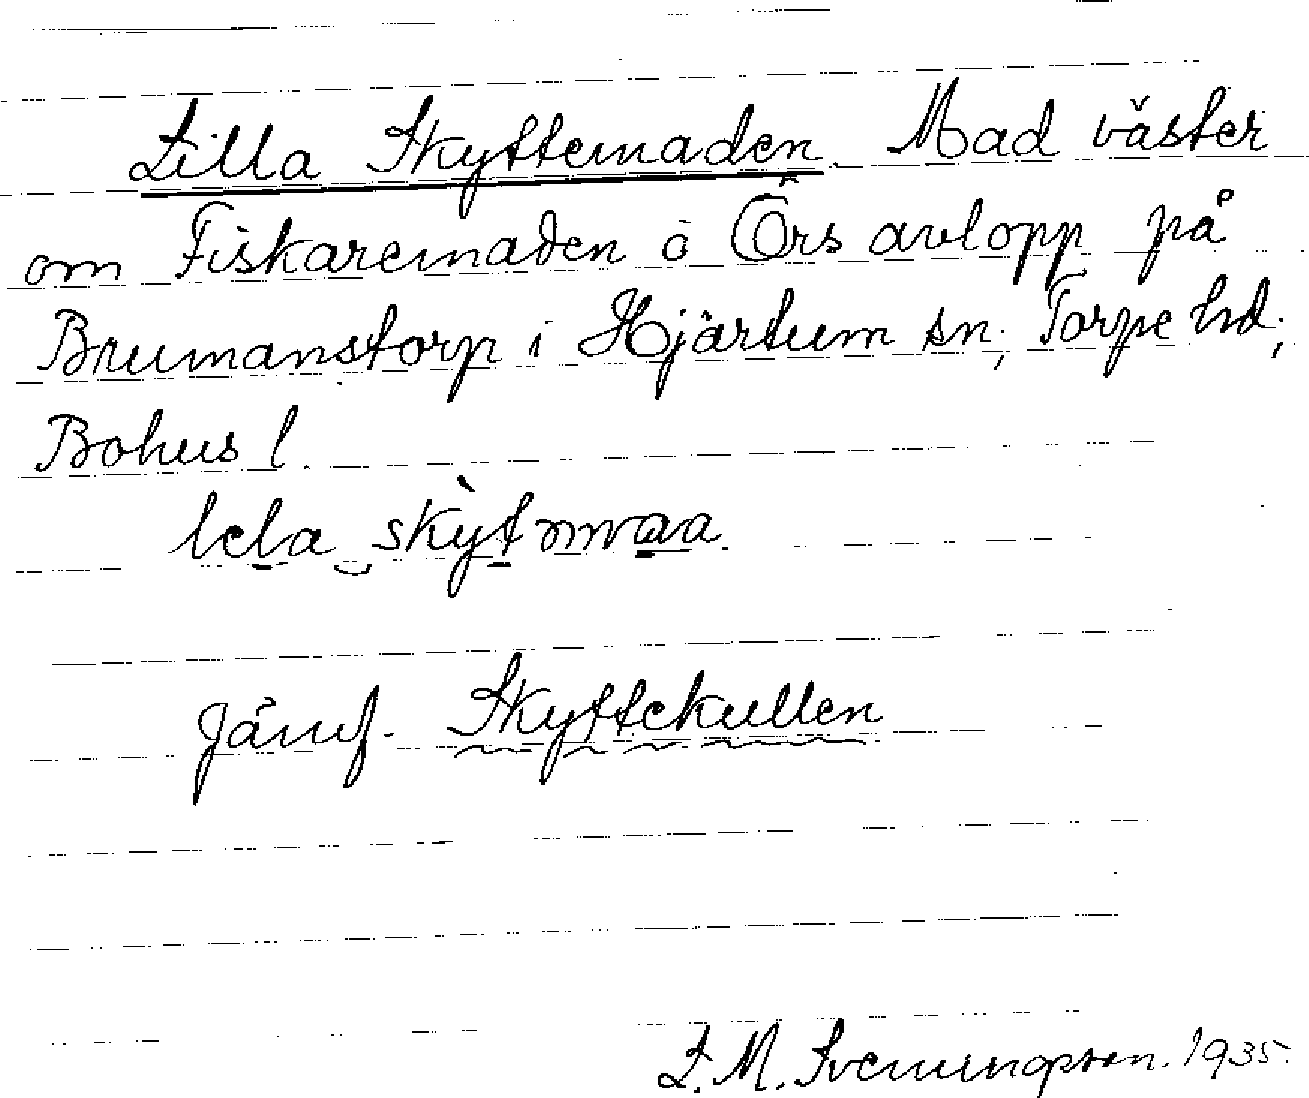 Lilla Skyttemaden. Mad väster
om Fiskaremaden o Örs avlopp på
Brumanstorp i Hjärtum sn; Torpe hd;
Bohus l.
lela skỳt
Jämf. Skyttekullen
L. M. Svenungsson. 1935.